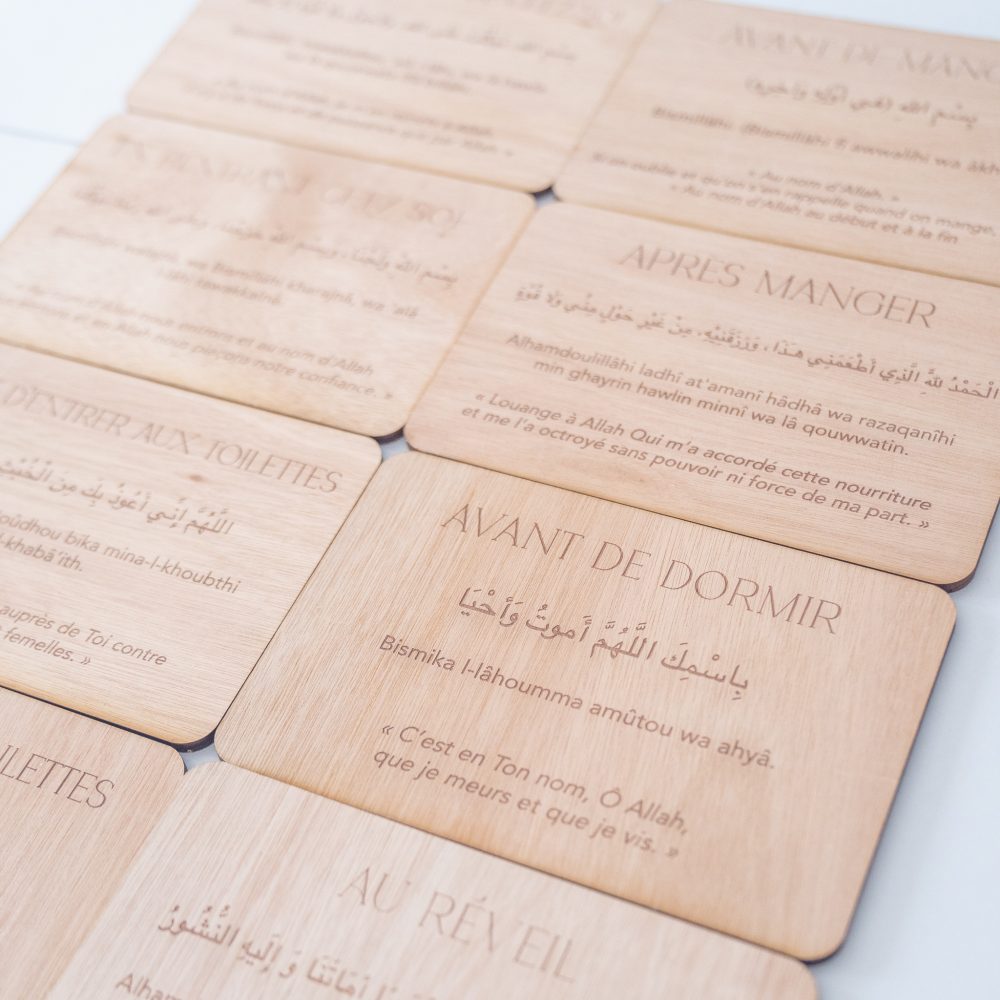 AVANT DE MANG
بِسْمِ اللهِ (فِي أَوَّلِهِ وَآخِرِهِ)
Bismillâhi (Bismillâhi fî awwalihi wa âkh
« Au nom d'Allah. »
Si on oublie et qu'on s'en rappelle quand on mange,
« Au nom d'Allah au début et à la fin
EN RENTRANT CHEZ SOI
بِسْمِ اللهِ وَلَجْنَا، وَبِسْمِ اللهِ خَرَجْنَا، وَعَلَى اللهِ رَبِّنَا تَوَكَّلْنَا
wa bismillâhi kharajnâ, wa 'alâ
nous entrons et au nom d'Allah
et en Allah nous plaçons notre confiance. »
APRÈS MANGER
الْحَمْدُ لِلَّهِ الَّذِي أَطْعَمَنِي هَذَا، وَرَزَقَنِيهِ، مِنْ غَيْرِ حَوْلٍ مِنِّي وَلَا قُوَّةٍ
Alhamdoulillâhi ladhî at'amanî hâdhâ wa razaqanîhi
min ghayrin hawlin minnî wa lâ qouwwatin.
« Louange à Allah Qui m'a accordé cette nourriture
et me l'a octroyé sans pouvoir ni force de ma part. »
D'ENTRER AUX TOILETTES
اللَّهُمَّ إِنِّي أَعُوذُ بِكَ مِنَ الْخُبْثِ
oûdhou bika mina-l-khoubthi
l-khabâ'ith.
auprès de Toi contre
femelles. »
AVANT DE DORMIR
بِاسْمِكَ اللَّهُمَّ أَموتُ وَأَحْيَا
Bismika l-lâhoumma amûtou wa ahyâ.
« C'est en Ton nom, Ô Allah,
que je meurs et que je vis. »
ILETTES
AU RÉVEIL
أَمَاتَنَا وَ إِلَيهِ النُّشُورُ
Alham